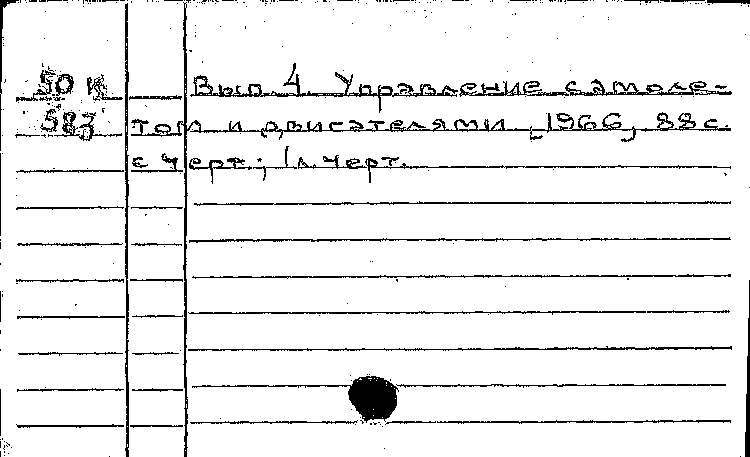 50 к Вып. 4. Управление самоле-
583 том и двигателями, 1966, 88 с.
с черт.; 1 л. черт.